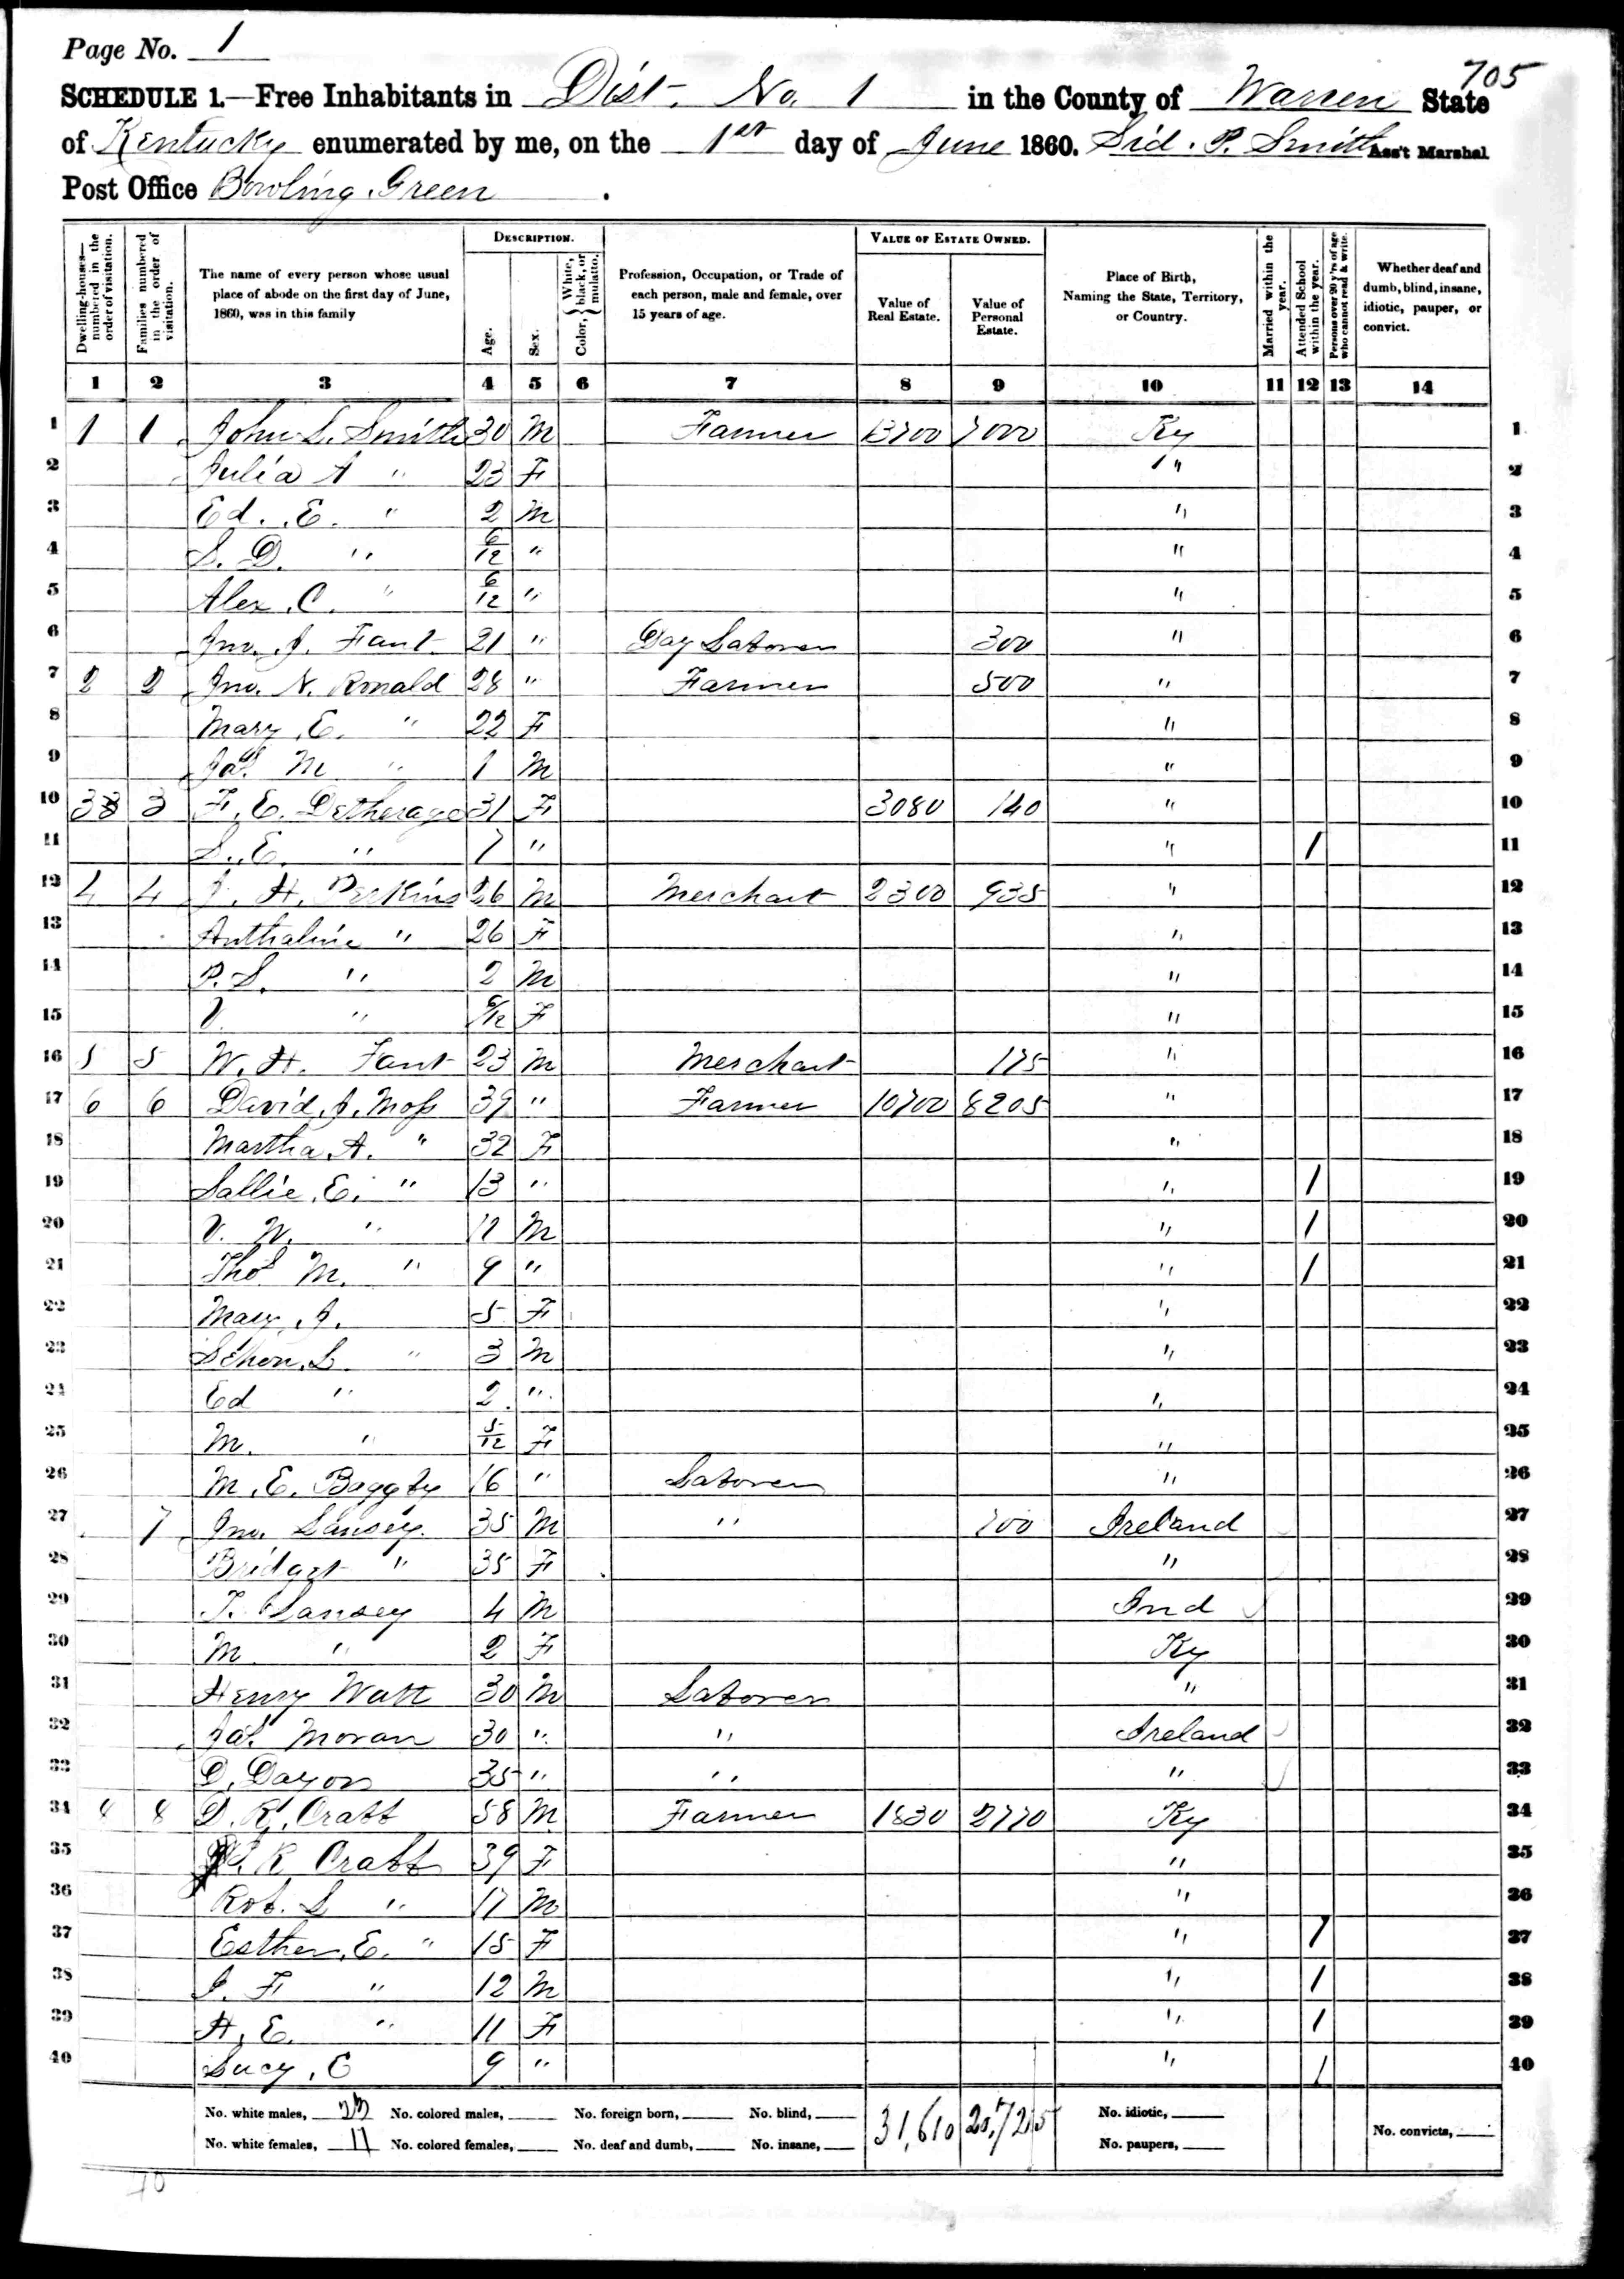 Page No. 1
705
SCHEDULE 1.—Free Inhabitants in Dist. No. 1 in the County of Warren State
of Kentucky enumerated by me, on the 1st day of June 1860. Sid. P. Smith Ass't Marshal
Post Office Bowling Green .
Dwelling-houses—numbered in the order of visitation. Families numbered in the order of visitation. The name of every person whose usual place of abode on the first day of June, 1860, was in this family DESCRIPTION. Age. Sex. Color, { White, black, or mulatto. Profession, Occupation, or Trade of each person, male and female, over 15 years of age. VALUE OF ESTATE OWNED. Value of Real Estate. Value of Personal Estate. Place of Birth, Naming the State, Territory, or Country. Married within the year. Attended School within the year. Persons over 20 y'rs of age who cannot read & write. Whether deaf and dumb, blind, insane, idiotic, pauper, or convict.
1 2 3 4 5 6 7 8 9 10 11 12 13 14
1 1 1 John S. Smith 30 M Farmer 13700 7000 Ky 1
2 Julia A " 23 F " 2
3 Ed. E. " 2 M " 3
4 S. D. " 6/12 " " 4
5 Alex. C. " 6/12 " " 5
6 Jno. J. Fant 21 " Day Laborer 300 " 6
7 2 2 Jno. N. Ronald 28 " Farmer 500 " 7
8 Mary E. " 22 F " 8
9 Jas. M " 1 M " 9
10 3 3 F. E. Detherage 31 F 3080 140 " 10
11 S. E. " 7 " " 1 11
12 4 4 J. H. Perkins 26 M Merchant 2300 935 " 12
13 " 26 F " 13
14 P. S. " 2 M " 14
15 V " /12 F " 15
16 5 5 W. H. Fant 23 M Merchant 175 " 16
17 6 6 David J. Moss 39 " Farmer 10700 8205 " 17
18 Martha A. " 32 F " 18
19 Sallie E. " 13 " " 1 19
20 V. W. " 11 M " 1 20
21 Thos M. " 9 " " 1 21
22 Mary J. 5 F " 22
23 S. " 3 M " 23
24 Ed " 2 " " 24
25 M. " 5/12 F " 25
26 M. E. Baggby 16 " Laborer " 26
27 7 Jno. Lansey 35 M " 100 Ireland 27
28 Bridget " 35 F " 28
29 T. Lansey 4 M Ind 29
30 M " 2 F Ky 30
31 Henry Watt 30 M Laborer " 31
32 Jas. Moran 30 " " Ireland 32
33 D. Dayon 35 " " " 33
34 8 8 D. R. Crabb 58 M Farmer 1830 2770 Ky 34
35 R Crabb 39 F " 35
36 Rob. S " 17 M " 36
37 Esther E. " 15 F " 1 37
38 J. F " 12 M " 1 38
39 A. E. " 11 F " 1 39
40 Lucy C 9 " " 1 40
No. white males, 23 No. colored males, No. foreign born, No. blind, 31,610 20,725 No. idiotic,
No. white females, 17 No. colored females, No. deaf and dumb, No. insane, No. paupers, No. convicts,
40